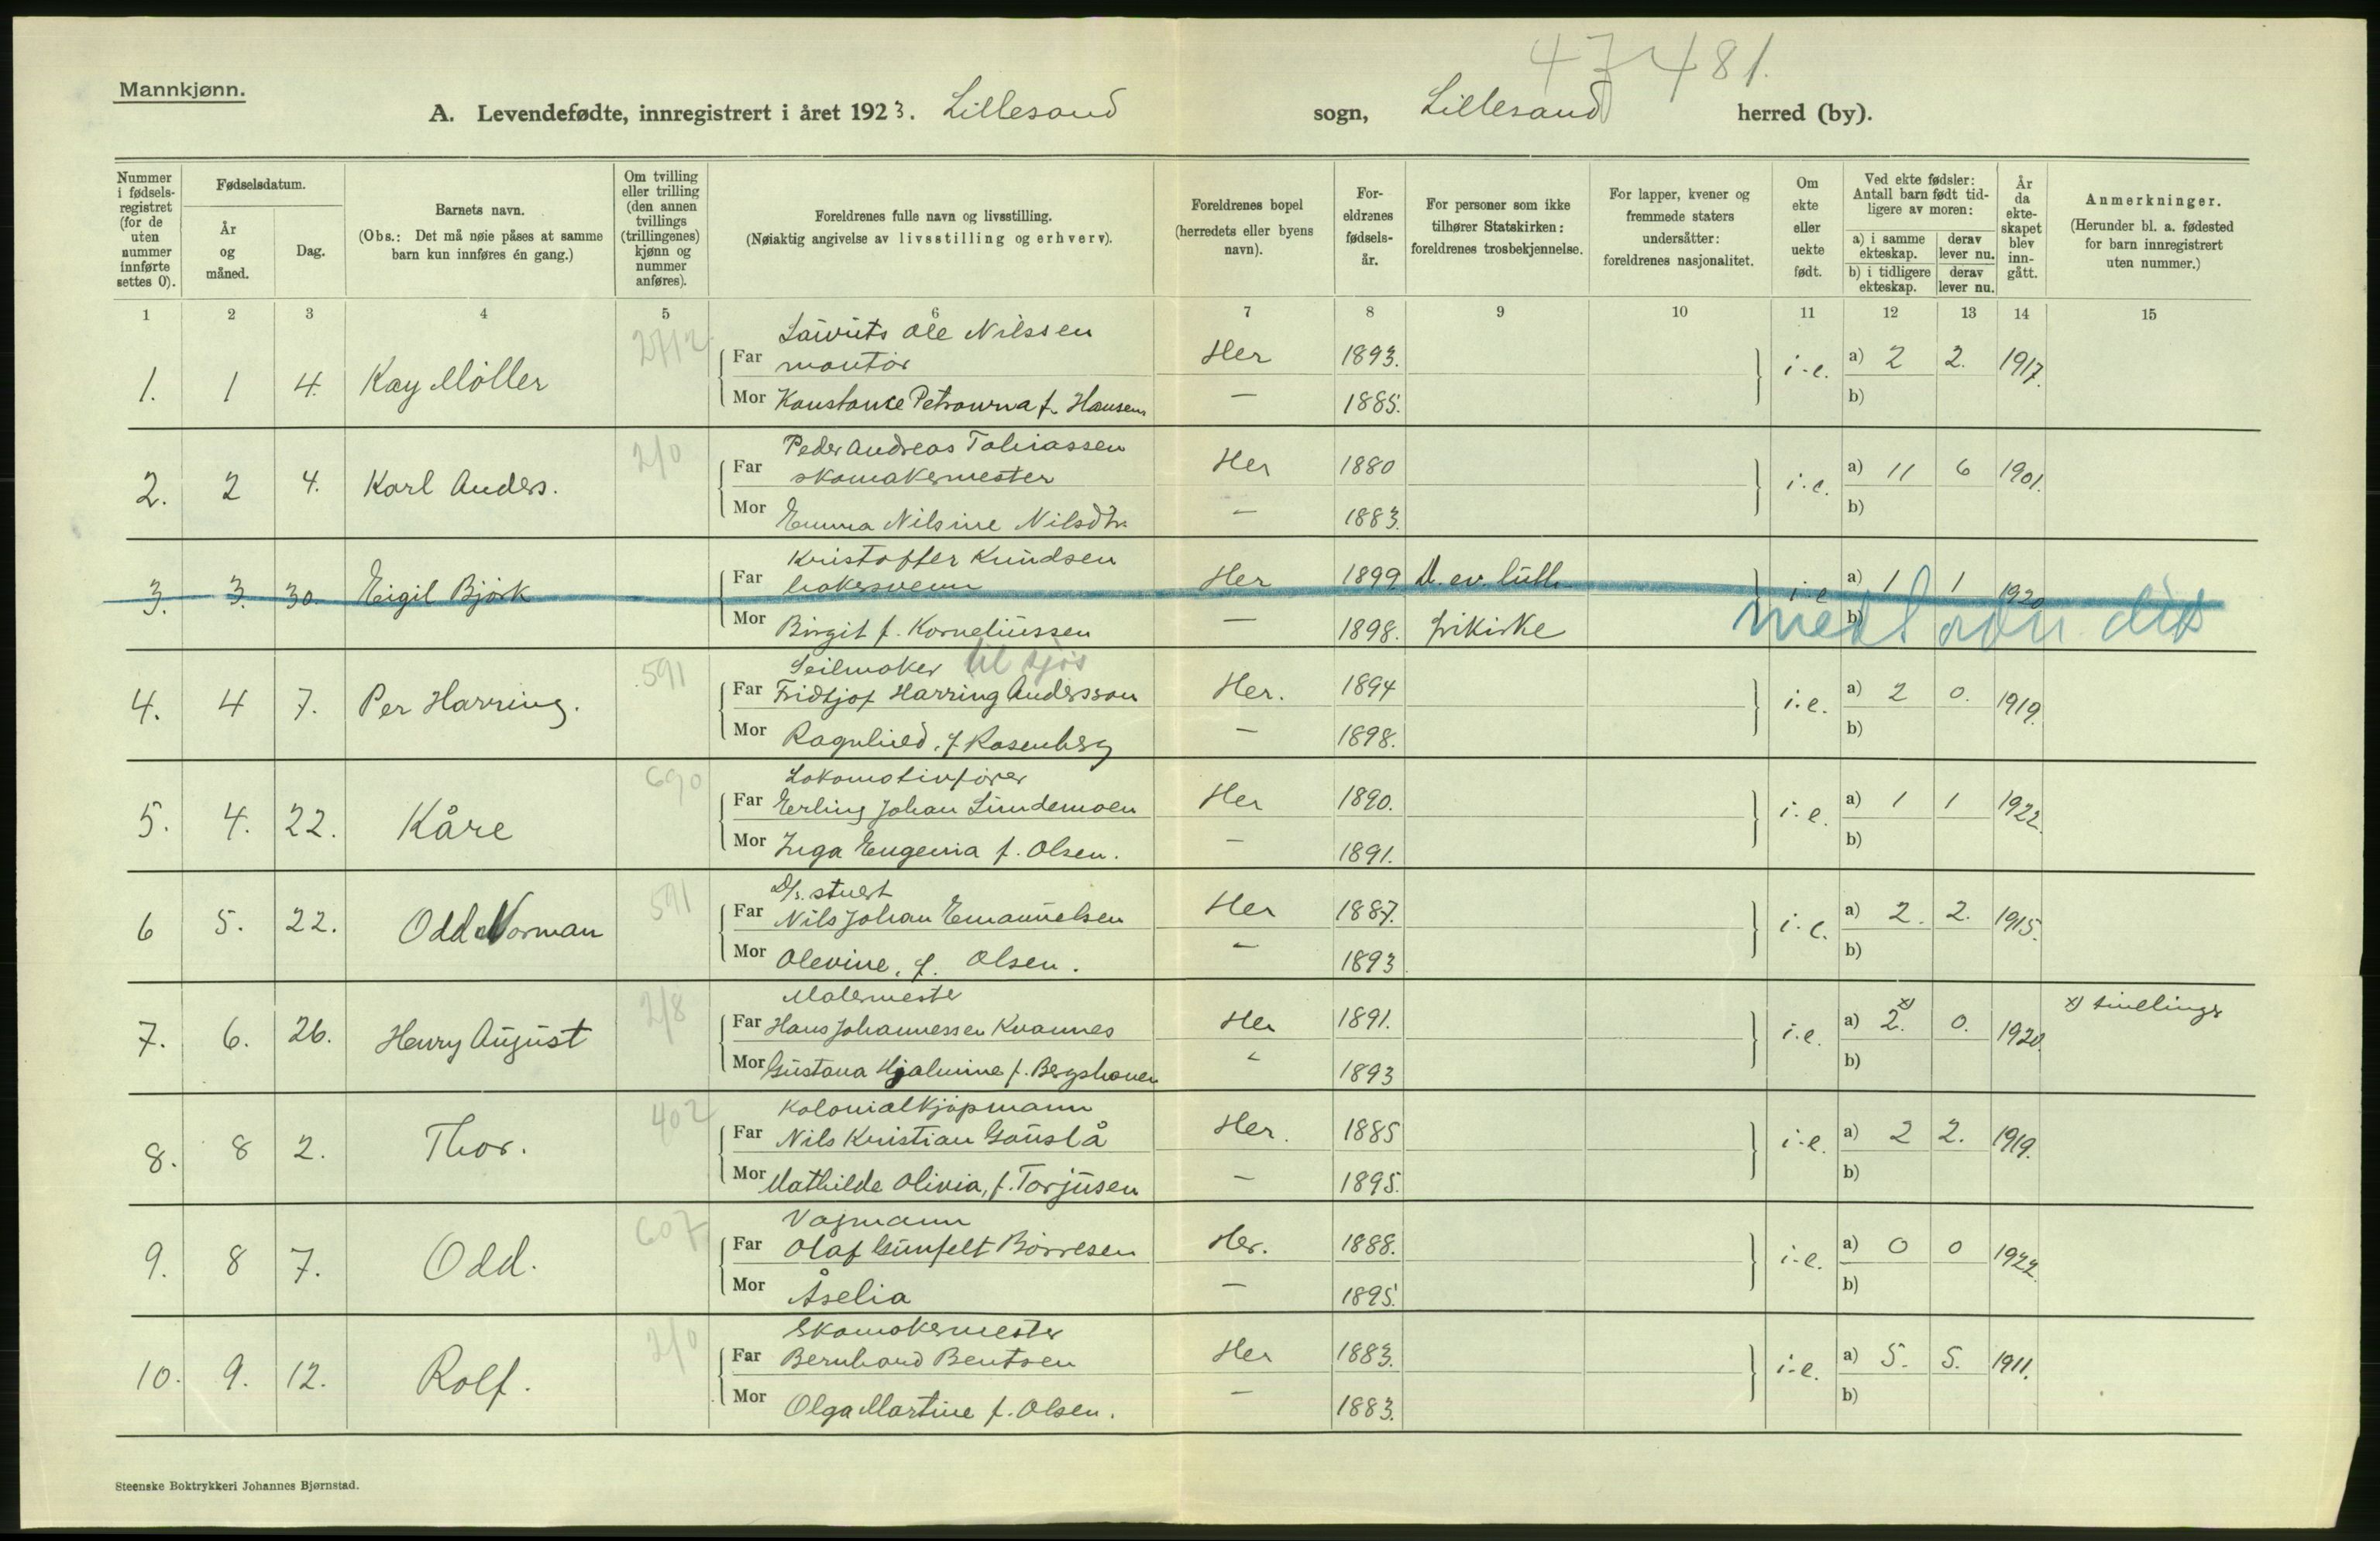 47481.
Mannkjønn.
A. Levendefødte, innregistrert i året 1923. Lillesand sogn, Lillesand herred (by).
Nummer i fødsels-registret (for de uten nummer innførte settes 0).
Fødselsdatum.
År og måned.
Dag.
Barnets navn.
(Obs.: Det må nøie påses at samme barn kun innføres én gang.)
Om tvilling eller trilling (den annen tvillings (trillingenes) kjønn og nummer anføres).
Foreldrenes fulle navn og livsstilling.
(Nøiaktig angivelse av livsstilling og erhverv).
Foreldrenes bopel (herredets eller byens navn).
For-eldrenes fødsels-år.
For personer som ikke tilhører Statskirken: foreldrenes trosbekjennelse.
For lapper, kvener og fremmede staters undersåtter: foreldrenes nasjonalitet.
Om ekte eller uekte født.
Ved ekte fødsler: Antall barn født tid-ligere av moren:
a) i samme ekteskap. derav lever nu.
b) i tidligere ekteskap. derav lever nu.
År da ekte-skapet blev inn-gått.
Anmerkninger.
(Herunder bl. a. fødested for barn innregistrert uten nummer.)
1 2 3 4 5 6 7 8 9 10 11 12 13 14 15
Lauvits Ole Nilssen
1. 1 4. Kay Möller 2712 Far montør Her 1893. i.e. a) 2 2. 1917.
Mor Konstance Petrowna f. Hansen — 1885. b)
Peder Andreas Tobiassen
2. 2 4. Karl Anders. 210 Far skomakermester Her 1880 i.e. a) 11 6 1901.
Mor Emma Nilsine Nilsdtr. — 1883. b)
Kristoffer Knudsen
3. 3. 30. Eigil Bjørk Far bakersvenn Her 1899 D. ev. luth. i.e a) 1 1 1920
Mor Birgit f. Korneliussen — 1898. frikirke b)
Seilmaker til sjøs
4. 4 7. Per Harring. 591 Far Fridtjof Harring Andersson Her. 1894 i.e. a) 2 0. 1919.
Mor Ragnhild, f. Rosenberg — 1898. b)
Lokomotivfører
5. 4. 22. Kåre 690 Far Erling Johan Lindemoen Her 1890. i.e. a) 1 1 1922.
Mor Inga Eugenia f. Olsen. — 1891. b)
D/s. stuert
6 5. 22. Odd Norman 591 Far Nils Johan Emanuelsen Her 1887. i.e. a) 2. 2. 1915.
Mor Olevine, f. Olsen. — 1893 b)
Malermester
7. 6. 26. Henry August 218 Far Hans Johannessen Kvannes Her 1891. i.e. a) 2. x) 0. 1920. x) tvillinger
Mor Gustava Hjalmine f. Bergshaven 1893 b)
Kolonialkjøpmann
8. 8 2. Thor. 402 Far Nils Kristian Gauslå Her. 1885 i.e. a) 2 2. 1919.
Mor Mathilde Olivia, f. Torjusen — 1895. b)
Vognmann
9. 8 7. Odd. 607 Far Olaf Gunfelt Børresen Her. 1888. i.e. a) 0 0 1922.
Mor Åselia — 1895. b)
Skomakermester
10. 9. 12. Rolf. 210 Far Bernhard Bentsen Her 1883. i.e. a) 5. 5. 1911.
Mor Olga Martine f. Olsen. — 1883. b)
Steenske Boktrykkeri Johannes Bjørnstad.